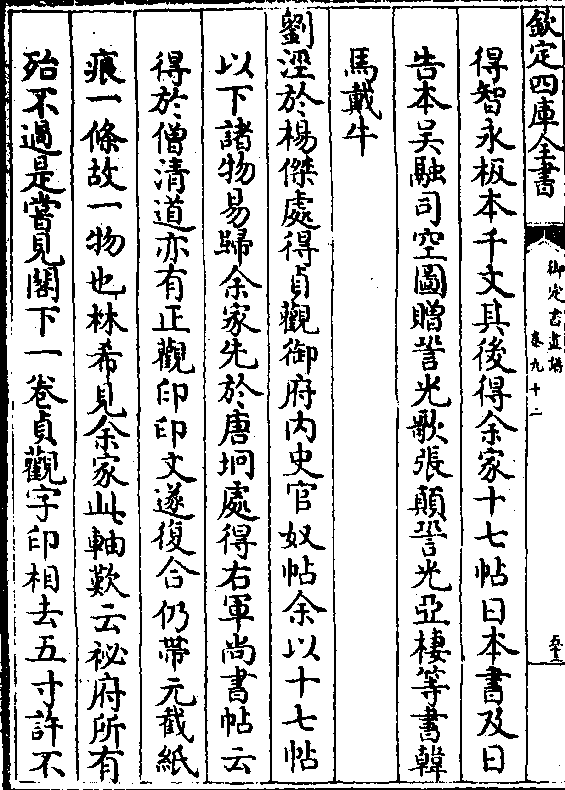 欽定四庫全書
御定書畫譜
卷九十二
得智永板本千文其後得余家十七帖日本書及日
告本吴融司空圖贈䛒光歌張顛䛒光亞棲等書韓
馬戴牛
劉涇於楊傑處得貞觀御府内史官奴帖余以十七帖
以下諸物易歸余家先於唐坰處得右軍尚書帖云
得於僧清道亦有正觀印印文遂復合仍帶元截紙
痕一條故一物也林希見余家此軸歎云祕府所有
殆不過是嘗見閣下一卷貞觀字印相去五寸許不